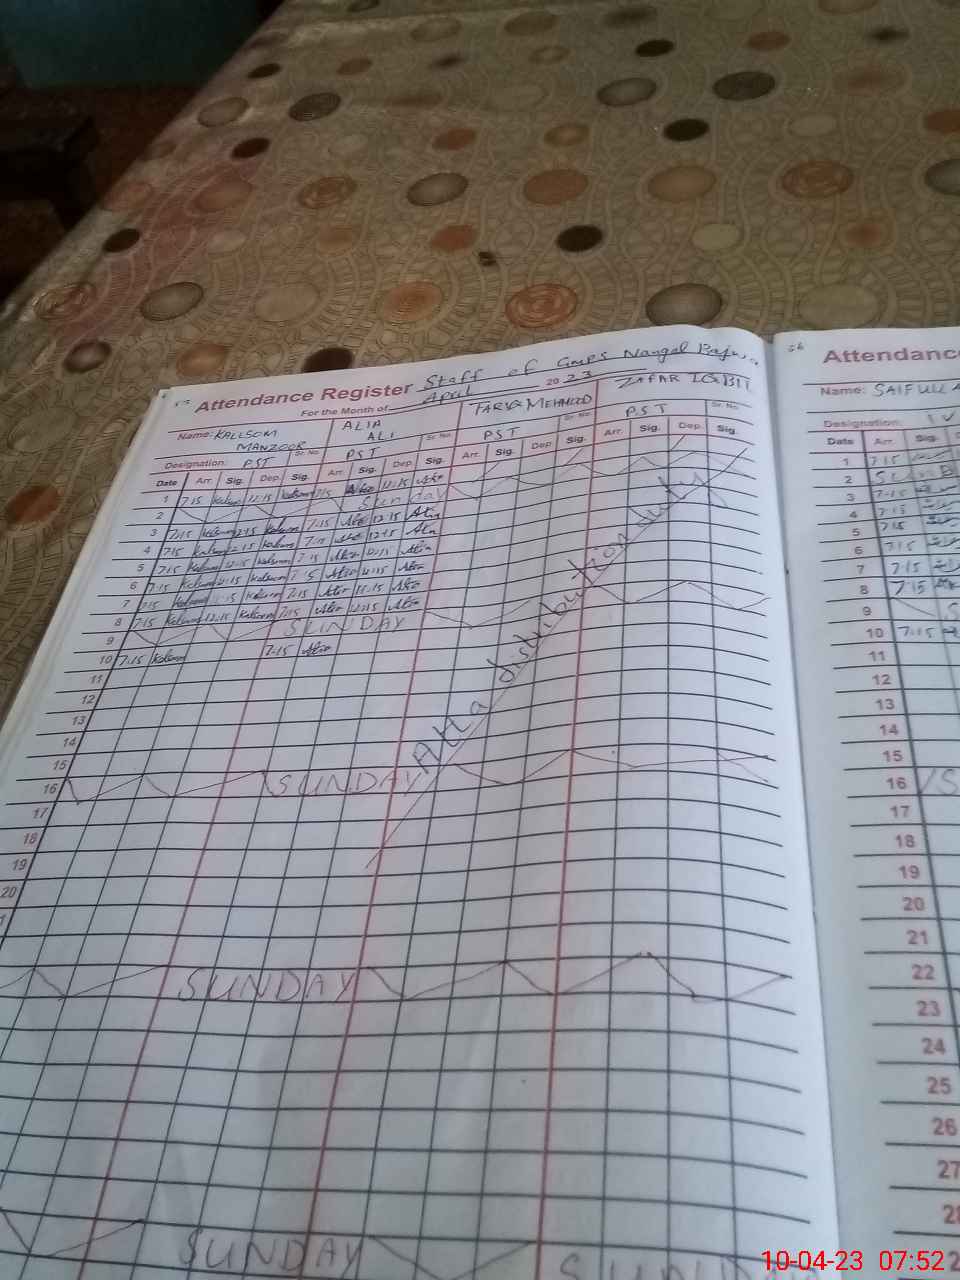 Attendance Register Staff of GMPS Nangal Bajwa
For the Month of April 2023
Name: KALLSOM MANZOOR ALIA ALI TARIQ MEHMOOD ZAFAR IQBIL
Designation: PST Sr. No. PST Sr. No. PST Sr. No. PST Sr. No.
Date Arr. Sig. Dep. Sig. Arr. Sig. Dep. Sig. Arr. Sig. Dep. Sig. Arr. Sig. Dep. Sig.
1 7:15 Kalsum 12:15 Kalsum 7:15 Alia 12:15 Alia
2 Sunday
3 7:15 Kalsum 12:15 Kalsum 7:15 Alia 12:15 Alia
4 7:15 Kalsum 12:15 Kalsum 7:15 Alia 12:15 Alia
5 7:15 Kalsum 12:15 Kalsum 7:15 Alia 12:15 Alia
6 7:15 Kalsum 12:15 Kalsum 7:15 Alia 12:15 Alia
7 7:15 Kalsum Kalsum 7:15 Alia 11:15 Alia
8 7:15 Kalsum 12:15 Kalsum 7:15 Alia 12:15 Alia
9 SUNDAY
10 7:15 Kalsum 7:15 Alia
11
12
13
14
15
16 SUNDAY
17
18
19
20
Atta distribution duty
SUNDAY
SUNDAY
Attendance
Name: SAIFULLA
Designation:
Date Arr. Sig.
1 7:15
2 SUND
3 7:15
4 7:15
5 7:15
6 7:15
7 7:15
8 7:15
9 S
10 7:15
11
12
13
14
15
16 S
17
18
19
20
21
22
23
24
25
26
27
28
10-04-23 07:52